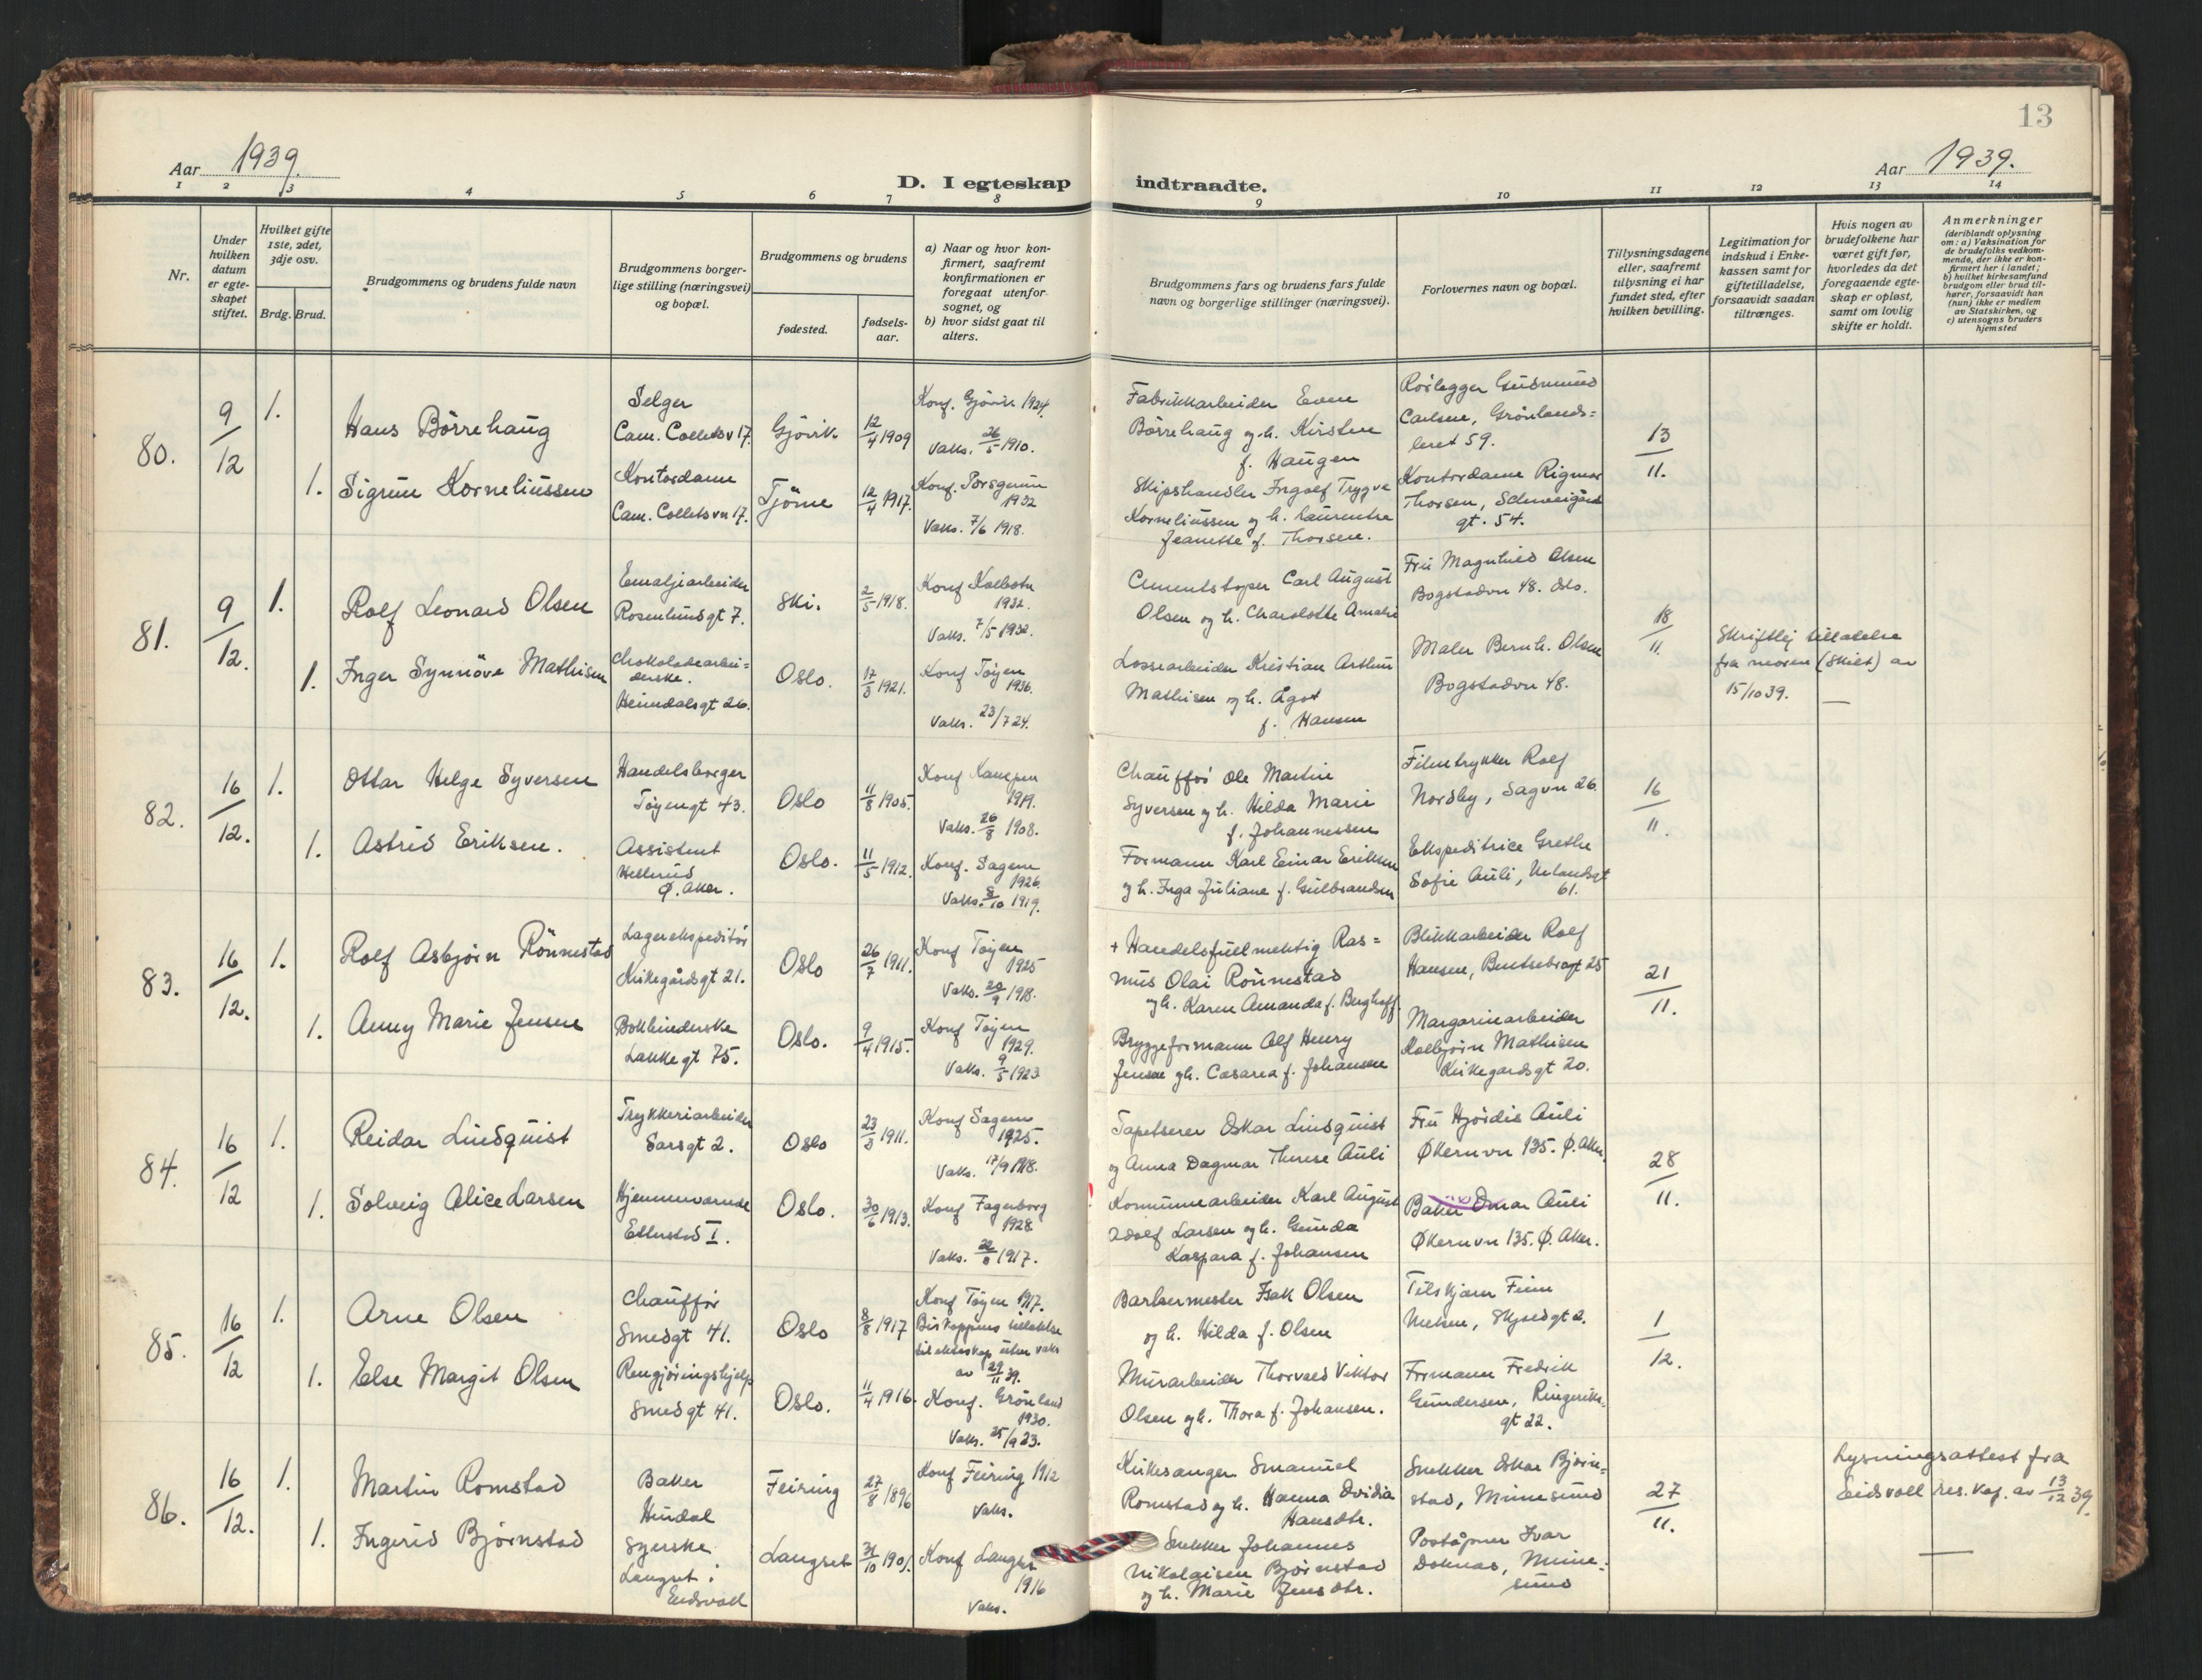 13
Aar 1939.
D. I egteskap indtraadte.
Aar 1939.
1 2 3 4 5 6 7 8 9 10 11 12 13 14
Nr.
Under
hvilken
datum
er egte-
skapet
stiftet.
Hvilket gifte
1ste, 2det,
3dje osv.
Brdg. Brud.
Brudgommens og brudens fulde navn
Brudgommens borger-
lige stilling (næringsvei)
og bopæl.
Brudgommens og brudens
fødested.
fødsels-
aar.
a) Naar og hvor kon-
firmert, saafremt
konfirmationen er
foregaat utenfor
sognet, og
b) hvor sidst gaat til
alters.
Brudgommens fars og brudens fars fulde
navn og borgerlige stillinger (næringsvei).
Forlovernes navn og bopæl.
Tillysningsdagene
eller, saafremt
tillysning ei har
fundet sted, efter
hvilken bevilling.
Legitimation for
indskud i Enke-
kassen samt for
giftetilladelse,
forsaavidt saadan
tiltrænges.
Hvis nogen av
brudefolkene har
været gift før,
hvorledes da det
foregaaende egte-
skap er opløst,
samt om lovlig
skifte er holdt.
Anmerkninger
(deriblandt oplysning
om: a) Vaksination for
de brudefolks vedkom-
mende, der ikke er kon-
firmert her i landet;
b) hvilket kirkesamfund
brudgom eller brud til-
hører, forsaavidt han
(hun) ikke er medlem
av Statskirken, og
c) utensogns bruders
hjemsted
80.
9/12
1.
Hans Börrehaug
Selger
Cam. Colletsv 17.
Gjövik
12/4 1909
Konf. Gjövik 1924.
Vaks. 26/5 1910.
Fabrikkarbeider Even
Börrehaug og h. Kirsten
f. Haugen
Rörlegger Gudmund
Carlsen, Grönlands=
leret 59.
13/11.
1.
Sigrun Korneliussen
Kontordame
Cam. Colletsvn 17.
Tjöme
12/4 1917.
Konf. Porsgrunn
1932
Vaks. 7/6 1918.
Skipshandler Ingolf Trygve
Korneliussen og h. Laurentse
Jeanette f. Thorsen.
Kontordame Rigmor
Thorsen, Schweigård
gt. 54.
81.
9/12.
1.
Rolf Leonard Olsen
Emaljearbeider
Rosenlundsgt 7.
Ski.
2/5 1918.
Konf Kolbotn
1932.
Vaks. 7/5 1932.
Cementstøper Carl August
Olsen og h. Charlotte Amalie
Fru Magnhild Olsen
Bogstadvn 48. Oslo.
18/11.
Skriftlig tillatelse
fra moren (skilt) av
15/10 39.
1.
Inger Synnöve Mathisen
Chokoladearbei=
derske.
Heimdalsgt 26.
Oslo.
17/3 1921.
Konf Tøyen
1936.
Vaks. 23/7 24.
Lossearbeider Kristian Arthur
Mathisen og h. Ågot
f. Hansen
Maler Bernh. Olsen
Bogstadvn 48.
82.
16/12.
1.
Ottar Helge Syversen
Handelsborger
Tøyengt 43.
Oslo
11/8 1905.
Konf Kampen
1919.
Vaks. 26/8 1908.
Chauffør Ole Martin
Syversen og h. Hilda Marie
f. Johannessen
Filmtrykker Rolf
Nordby, Sagvn 26.
16/11.
1.
Astrid Eriksen.
Assistent
Hellerud
Ø. Aker.
Oslo.
11/5 1912.
Konf. Sagene
1926.
Vaks. 8/10 1919.
Formann Karl Einar Eriksen
og h. Inga Juliane f. Gulbrandsen
Ekspeditrice Grethe
Sofie Auli, Uelandsgt
61.
83.
16/12.
1.
Rolf Asbjørn Rönnestad
Lagerekspeditör
Kirkegårdsgt 21.
Oslo
26/7 1911.
Konf Tøyen
1925
Vaks. 20/9 1918.
+ Handelsfullmektig Ras=
mus Olai Rönnestad
og h. Karen Amanda f. Berghoff
Blikkarbeider Rolf
Hansen, Bentsebrogt 25
21/11.
1.
Anny Marie Jensen
Bokbinderske
Lakkegt 75.
Oslo.
9/4 1915.
Konf Tøyen
1929.
Vaks. 9/5 1923
Bryggeformann Alf Henry
Jensen og h. Cæsarea f. Johansen
Margarinarbeider
Kolbjørn Mathisen
Kirkegardsgt 20.
84.
16/12
1.
Reidar Lindquist
Trykkeriarbeider
Sarsgt 2.
Oslo
23/3 1911.
Konf Sagene
1925.
Vaks. 17/9 1918.
Tapetserer Oskar Lindquist
og Anna Dagmar Therese Auli
Fru Hjördis Auli
Økernvn 135. Ø. Aker.
28/11.
1.
Solveig Alice Larsen
Hjemmeværende
Etterstad I.
Oslo.
30/6 1913.
Konf Fagerborg
1928.
Vaks. 22/8 1917.
Kommunearbeider Karl August
Adolf Larsen og h. Gunda
Kaspara f. Johansen
Baker Omar Auli
Økernvn 135. Ø. Aker.
85.
16/12
1.
Arne Olsen
Chauffør
Smedgt 41.
Oslo
8/8 1917
Konf Tøyen 1917.
Biskoppens tillatelse
til ekteskap uten vaks
av 29/11 39.
Barbermester Isak Olsen
og h. Hilda f. Olsen
Tilskjærer Finn
Nielsen, Skysedgt 2.
1/12.
1.
Else Margit Olsen
Rengjøringshjelp
Smedgt 41.
Oslo.
11/4 1916.
Konf. Grönland
1930.
Vaks. 25/9 23.
Murarbeider Thorvald Viktor
Olsen og h. Thora f. Johansen.
Formann Fredrik
Gundersen, Ringeriks
gt 22.
86.
16/12.
1.
Martin Romstad
Baker
Hurdal
Feiring
27/8 1896
Konf Feiring 1912
Vaks.
Kirkesanger Emanuel
Romstad og h. Hanna Ovidia
Hansdtr.
Snekker Oskar Björn=
stad, Minnesund
27/11.
Lysningsattest fra
Eidsvoll res. kap. av 13/12 39.
1.
Ingerid Bjørnstad
Syerske
Langset i
Eidsvoll
Langset
31/10 1901.
Konf Langset
1916
Vaks.
Snekker Johannes
Nikolaisen Bjørnstad
og h. Marie Jensdtr.
Poståpner Ivar
Doknæs, Minne=
sund